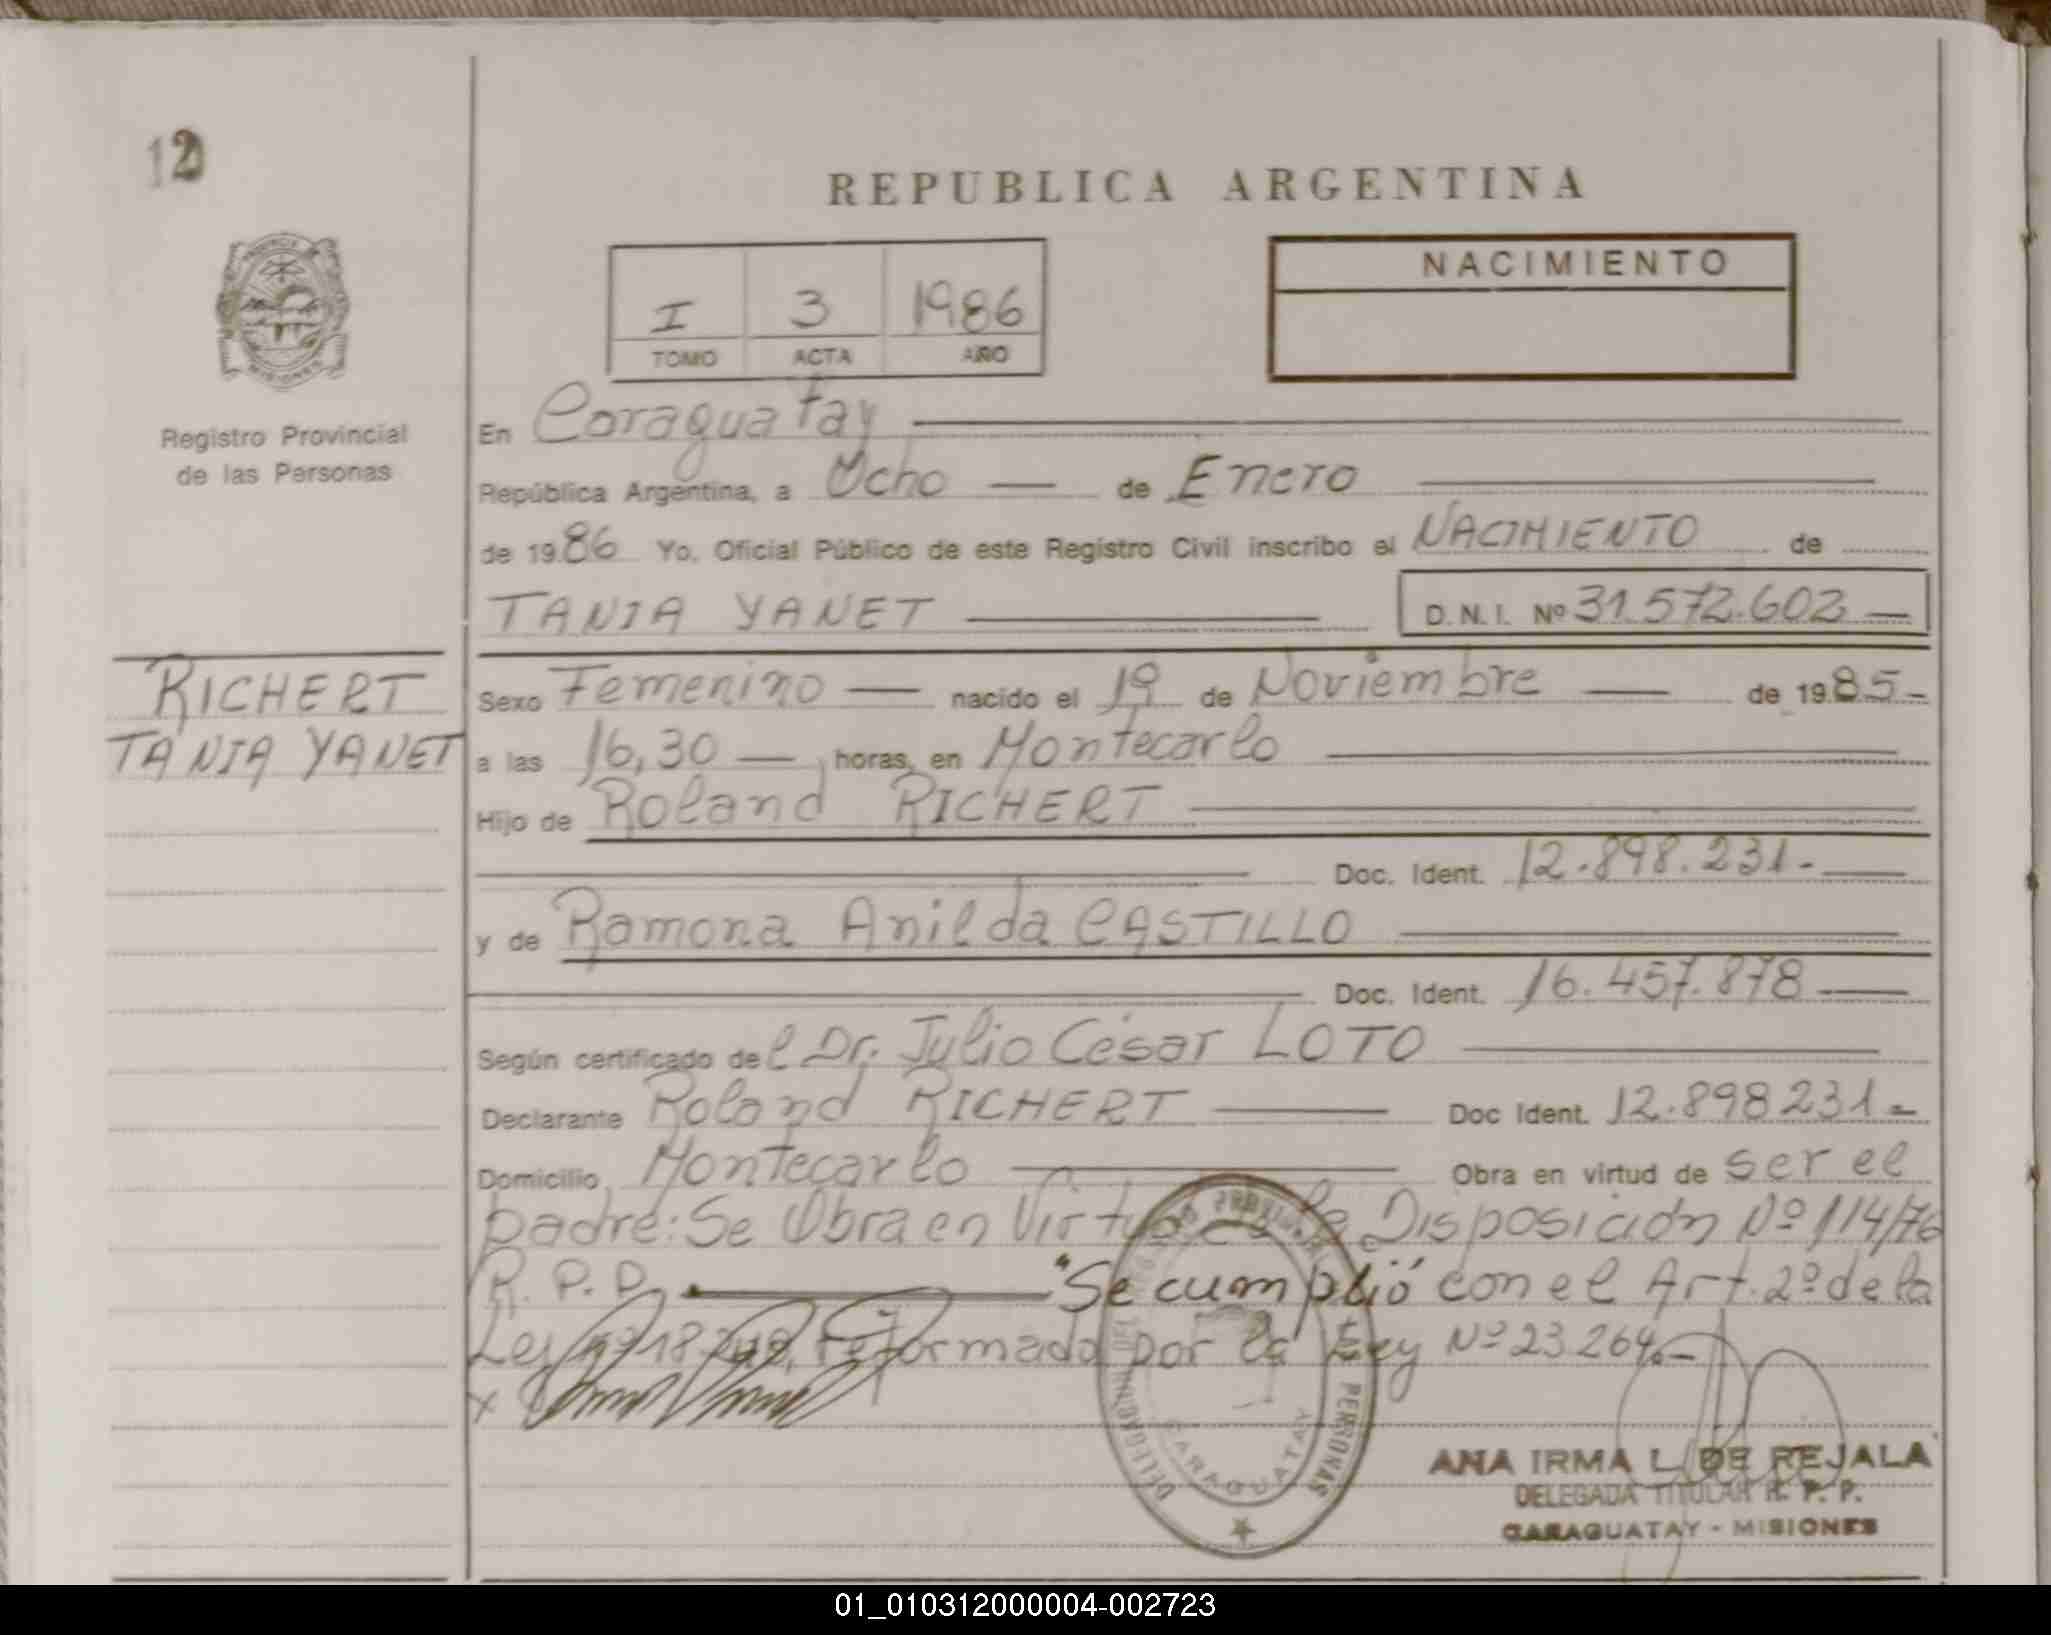 12
REPUBLICA ARGENTINA
I 3 1986
TOMO ACTA AÑO
NACIMIENTO
MISIONES
Registro Provincial
de las Personas
En Caraguatay
República Argentina, a Ocho de Enero
de 1986 Yo, Oficial Público de este Registro Civil inscribo el NACIMIENTO de
TANIA YANET D.N.I. Nº 31.572.602
RICHERT
TANIA YANET
Sexo Femenino nacido el 19 de Noviembre de 1985-
a las 16,30 horas, en Montecarlo
Hijo de Roland RICHERT
Doc. Ident. 12.898.231.-
y de Ramona Anilda CASTILLO
Doc. Ident. 16.457.878
Según certificado del Dr. Julio César LOTO
Declarante Roland RICHERT Doc Ident. 12.898231-
Domicilio Montecarlo Obra en virtud de ser el
padre: Se Obra en Virtud de la Disposición Nº 114/76
R.P.P. "Se cumplió con el Art. 2º de la
Ley Nº 18.248, reformada por la Ley Nº 23264.-
x
PERSONAS
CARAGUATAY
ANA IRMA L. DE REJALA
DELEGADA TITULAR R. P. P.
CARAGUATAY - MISIONES
01_010312000004-002723